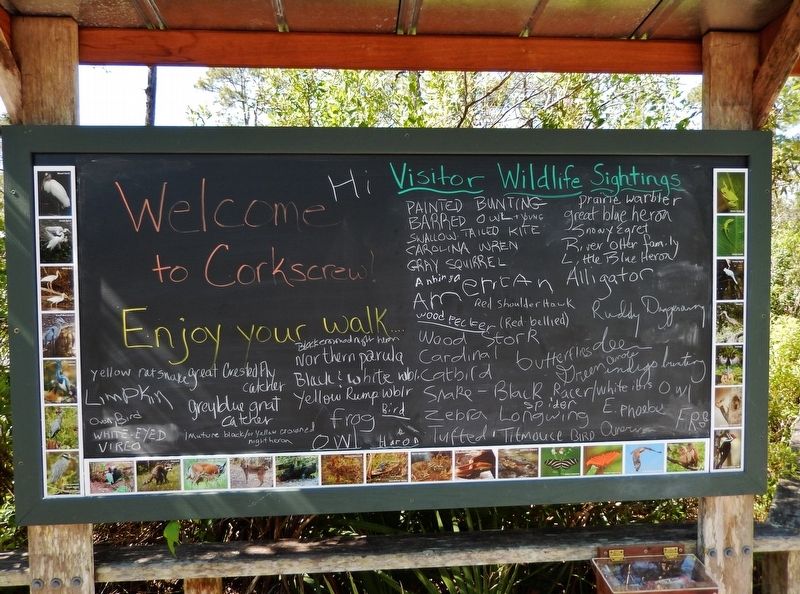 Hi
Welcome
to Corkscrew!
Enjoy your walk....
Visitor Wildlife Sightings
PAINTED BUNTING
BARRED OWL + YOUNG
SWALLOW-TAILED KITE
CAROLINA WREN
GRAY SQUIRREL
Prairie warbler
great blue heron
Snowy Egret
River Otter family
Little Blue Heron
Anhinga
American Alligator
Red Shoulder Hawk
wood Pecker (Red-bellied)
Wood Stork
Cardinal
Catbird
butterflies
dee
Green
indigo bunting
Snake - Black Racer/White ibis Owl
Spider
Zebra Longwing
E. Phoebe
Tufted Titmouse
Bird
yellow ratsnake
great Crested Fly
catcher
Limpkin
greyblue gnat
Catcher
Oven Bird
WHITE-EYED
VIREO
Imature black/or Yellow crowned
night heron
Northern parula
Black & white wblr
Yellow Rump Wblr
Bird
frog
OWL
Heron